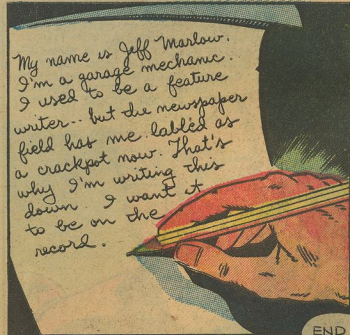 My name is Jeff Marlow.
I'm a garage mechanic.
I used to be a feature
writer.. but the newspaper
field has me labled as
a crackpot now. That's
why I'm writing this
down. I want it
to be on the
record.
END